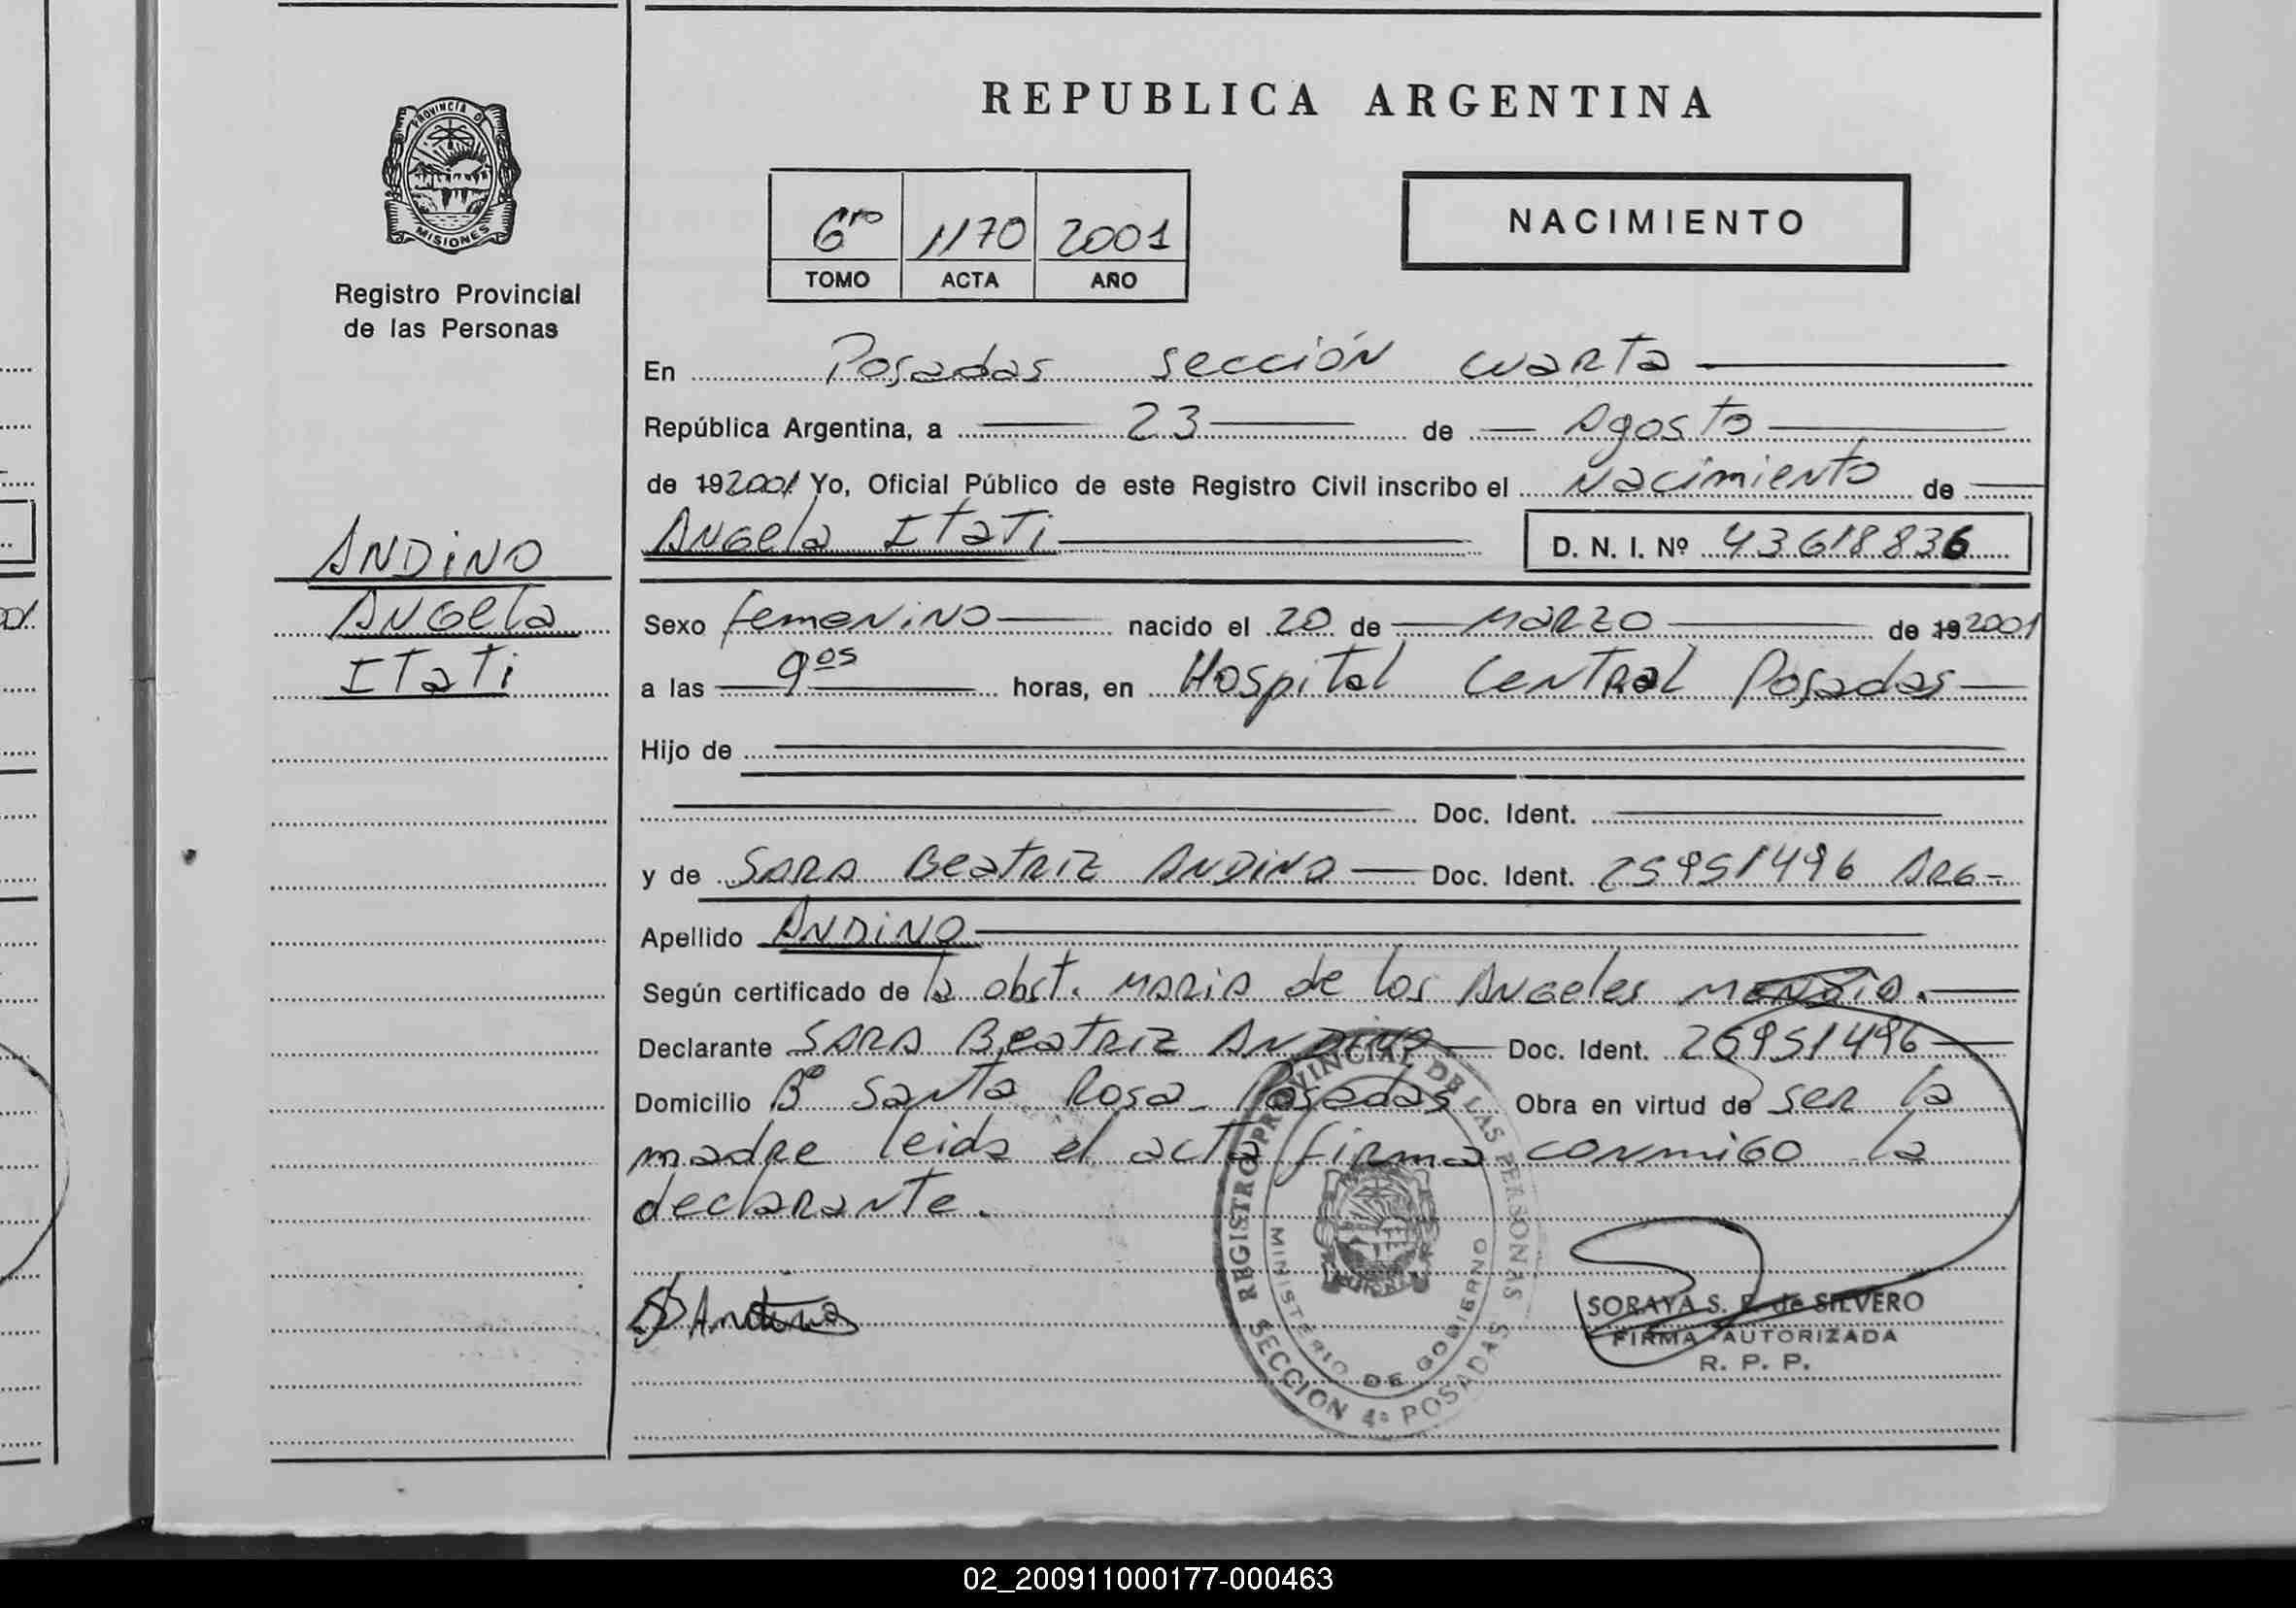 REPUBLICA ARGENTINA
PROVINCIA DE
MISIONES
Registro Provincial
de las Personas
6ro 1170 2001
TOMO ACTA AÑO
NACIMIENTO
En Posadas sección cuarta
República Argentina, a 23 de Agosto
de 192001 Yo, Oficial Público de este Registro Civil inscribo el Nacimiento de
Angela Itati D. N. I. Nº 43618836
ANDINO
Angela
Itati
Sexo femenino nacido el 20 de Marzo de 192001
a las 9os horas, en Hospital Central Posadas
Hijo de
Doc. Ident.
y de SARA Beatriz ANDINO Doc. Ident. 25951496 ARG-
Apellido ANDINO
Según certificado de la obst. Maria de los Angeles
Declarante SARA Beatriz ANDINO Doc. Ident. 26951496
Domicilio Bº Santa Rosa - Posadas Obra en virtud de ser la
madre leida el acta firma conmigo la
declarante.
S Andino
REGISTRO PROVINCIAL DE LAS PERSONAS
MINISTERIO DE GOBIERNO
SECCION 4ª POSADAS
SORAYA S. de SILVERO
FIRMA AUTORIZADA
R. P. P.
02_200911000177-000463